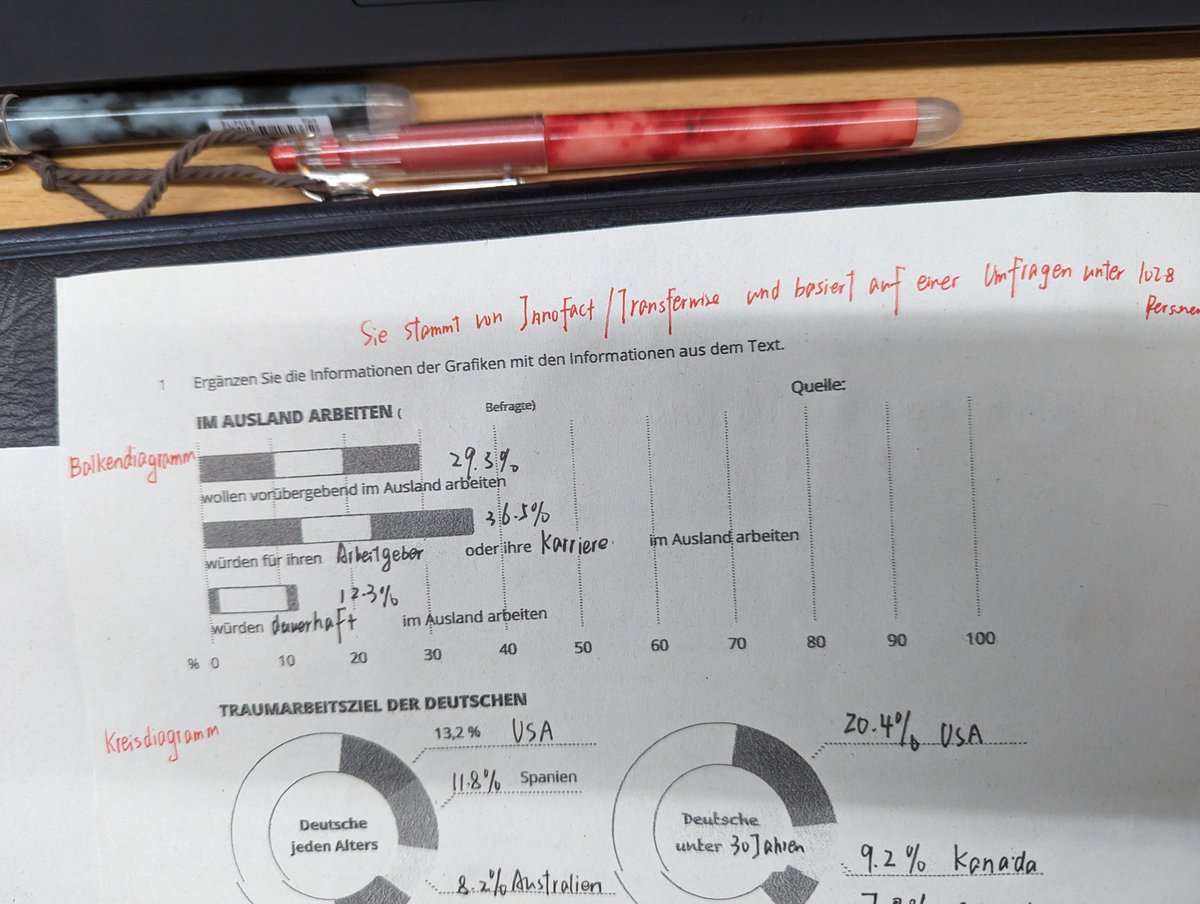 Sie stammt von Innofact/Transferwise und basiert auf einer Umfragen unter 1028
Personen
1 Ergänzen Sie die Informationen der Grafiken mit den Informationen aus dem Text.
IM AUSLAND ARBEITEN ( Befragte) Quelle:
Balkendiagramm
29.3%
wollen vorübergehend im Ausland arbeiten
36.5%
würden für ihren Arbeitgeber oder ihre Karriere im Ausland arbeiten
12.3%
würden dauerhaft im Ausland arbeiten
% 0 10 20 30 40 50 60 70 80 90 100
TRAUMARBEITSZIEL DER DEUTSCHEN
Kreisdiagramm
13,2 % USA
11.8% Spanien
Deutsche
jeden Alters
8.2% Australien
20.4% USA
Deutsche
unter 30 Jahren
9.2% Kanada